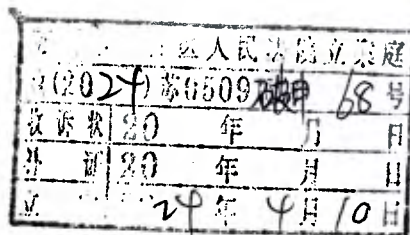 区人民法院立案庭
(2024)苏0509破申68号
收诉状 20 年 月 日
补证 20 年 月 日
立 24年4月10日